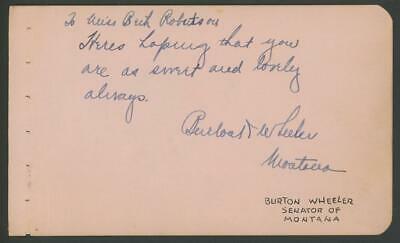 To Miss Beth Robertson
Heres hoping that you
are as sweet and lovely
always.
Burton K Wheeler
Montana
BURTON WHEELER
SENATOR OF
MONTANA